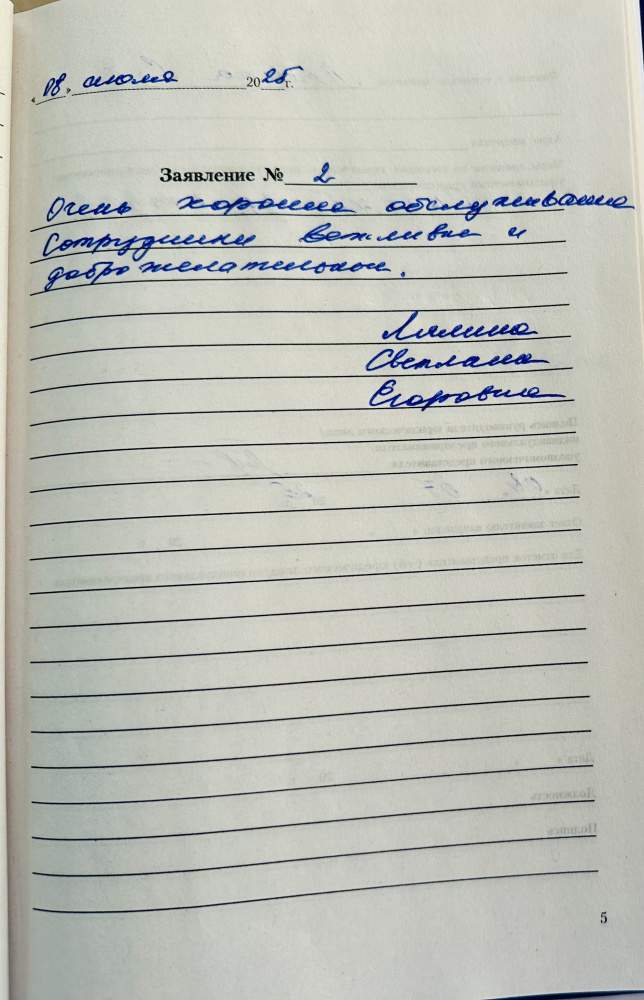 « 08 » июля 2025 г.
Заявление № 2
Очень хорошее обслуживание
Сотрудники вежливые и
доброжелательные.
Лялина
Светлана
Егоровна
5